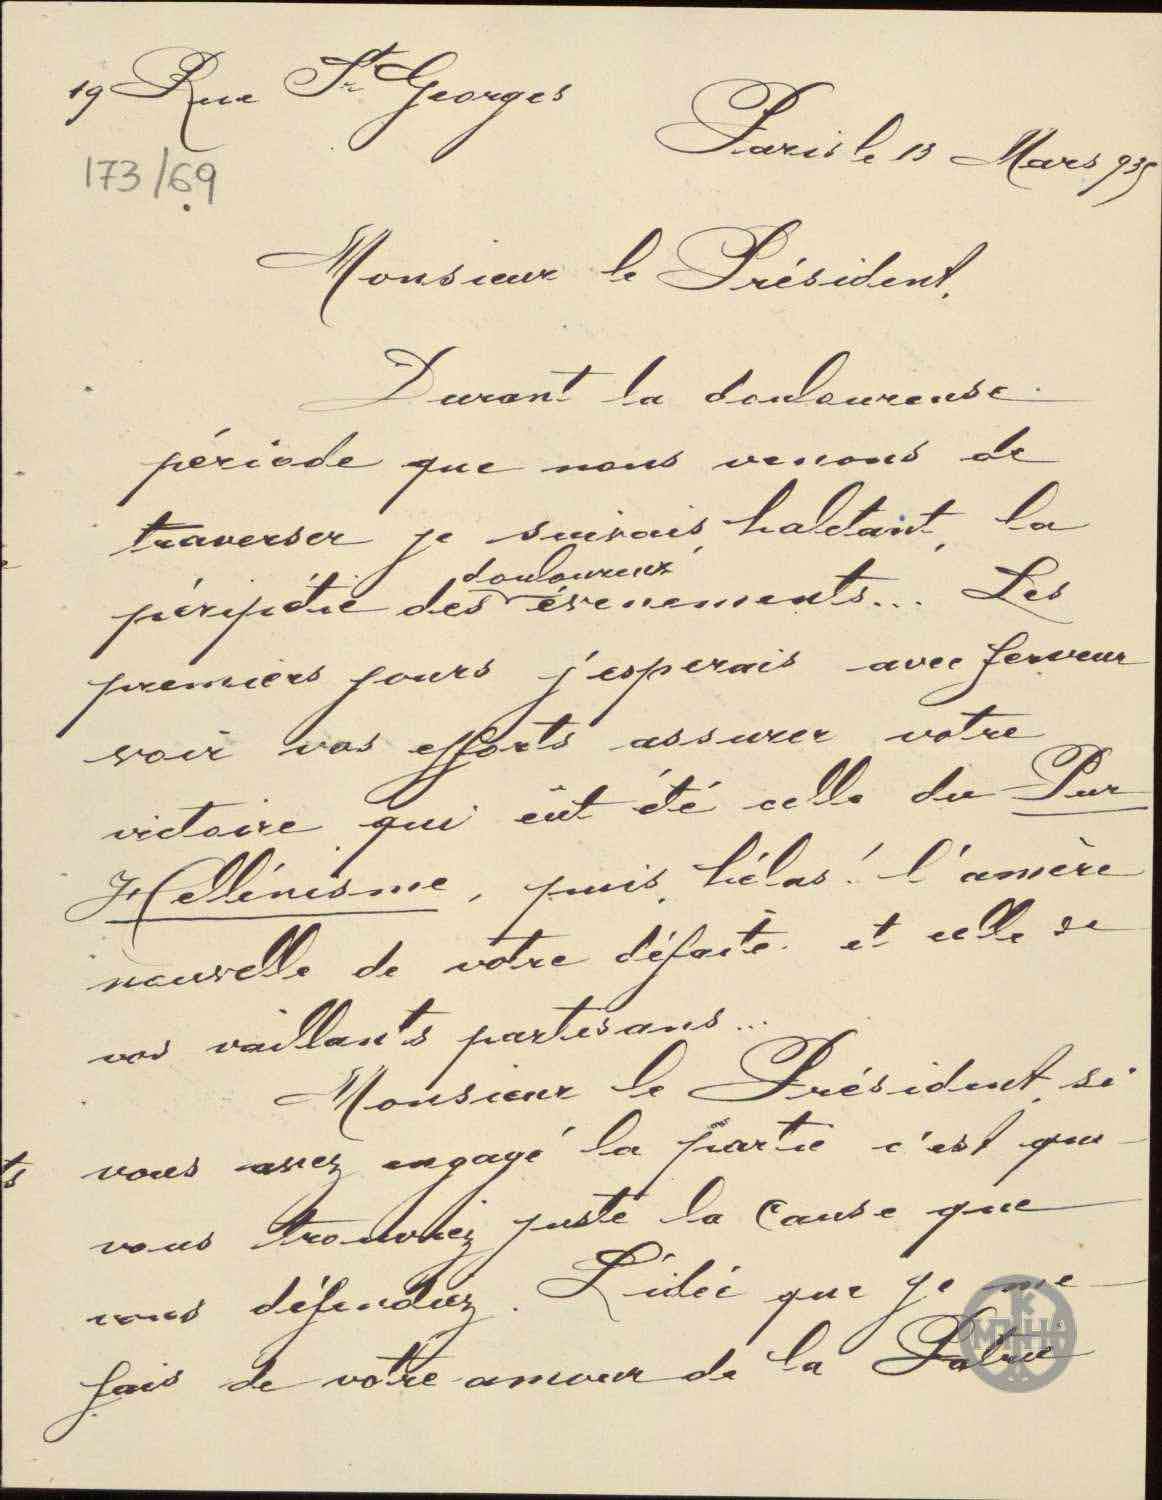 19 Rue St Georges
Paris le 13 Mars 935
173/69
Monsieur le Président,
Durant la douloureuse
période que nous venons de
traverser je suivais, haletant, la
péripétie des douloureux évenements... Les
premiers jours j'esperais avec ferveur
voir vos efforts assurer votre
victoire qui eût été celle du Pur
Hellénisme, puis, hélas! l'amère
nouvelle de votre défaite et celle de
vos vaillants partisans...
Monsieur le Président, si
vous avez engagé la partie c'est que
vous trouviez juste la Cause que
vous défendiez. L'idée que je me
fais de votre amour de la Patrie
ts